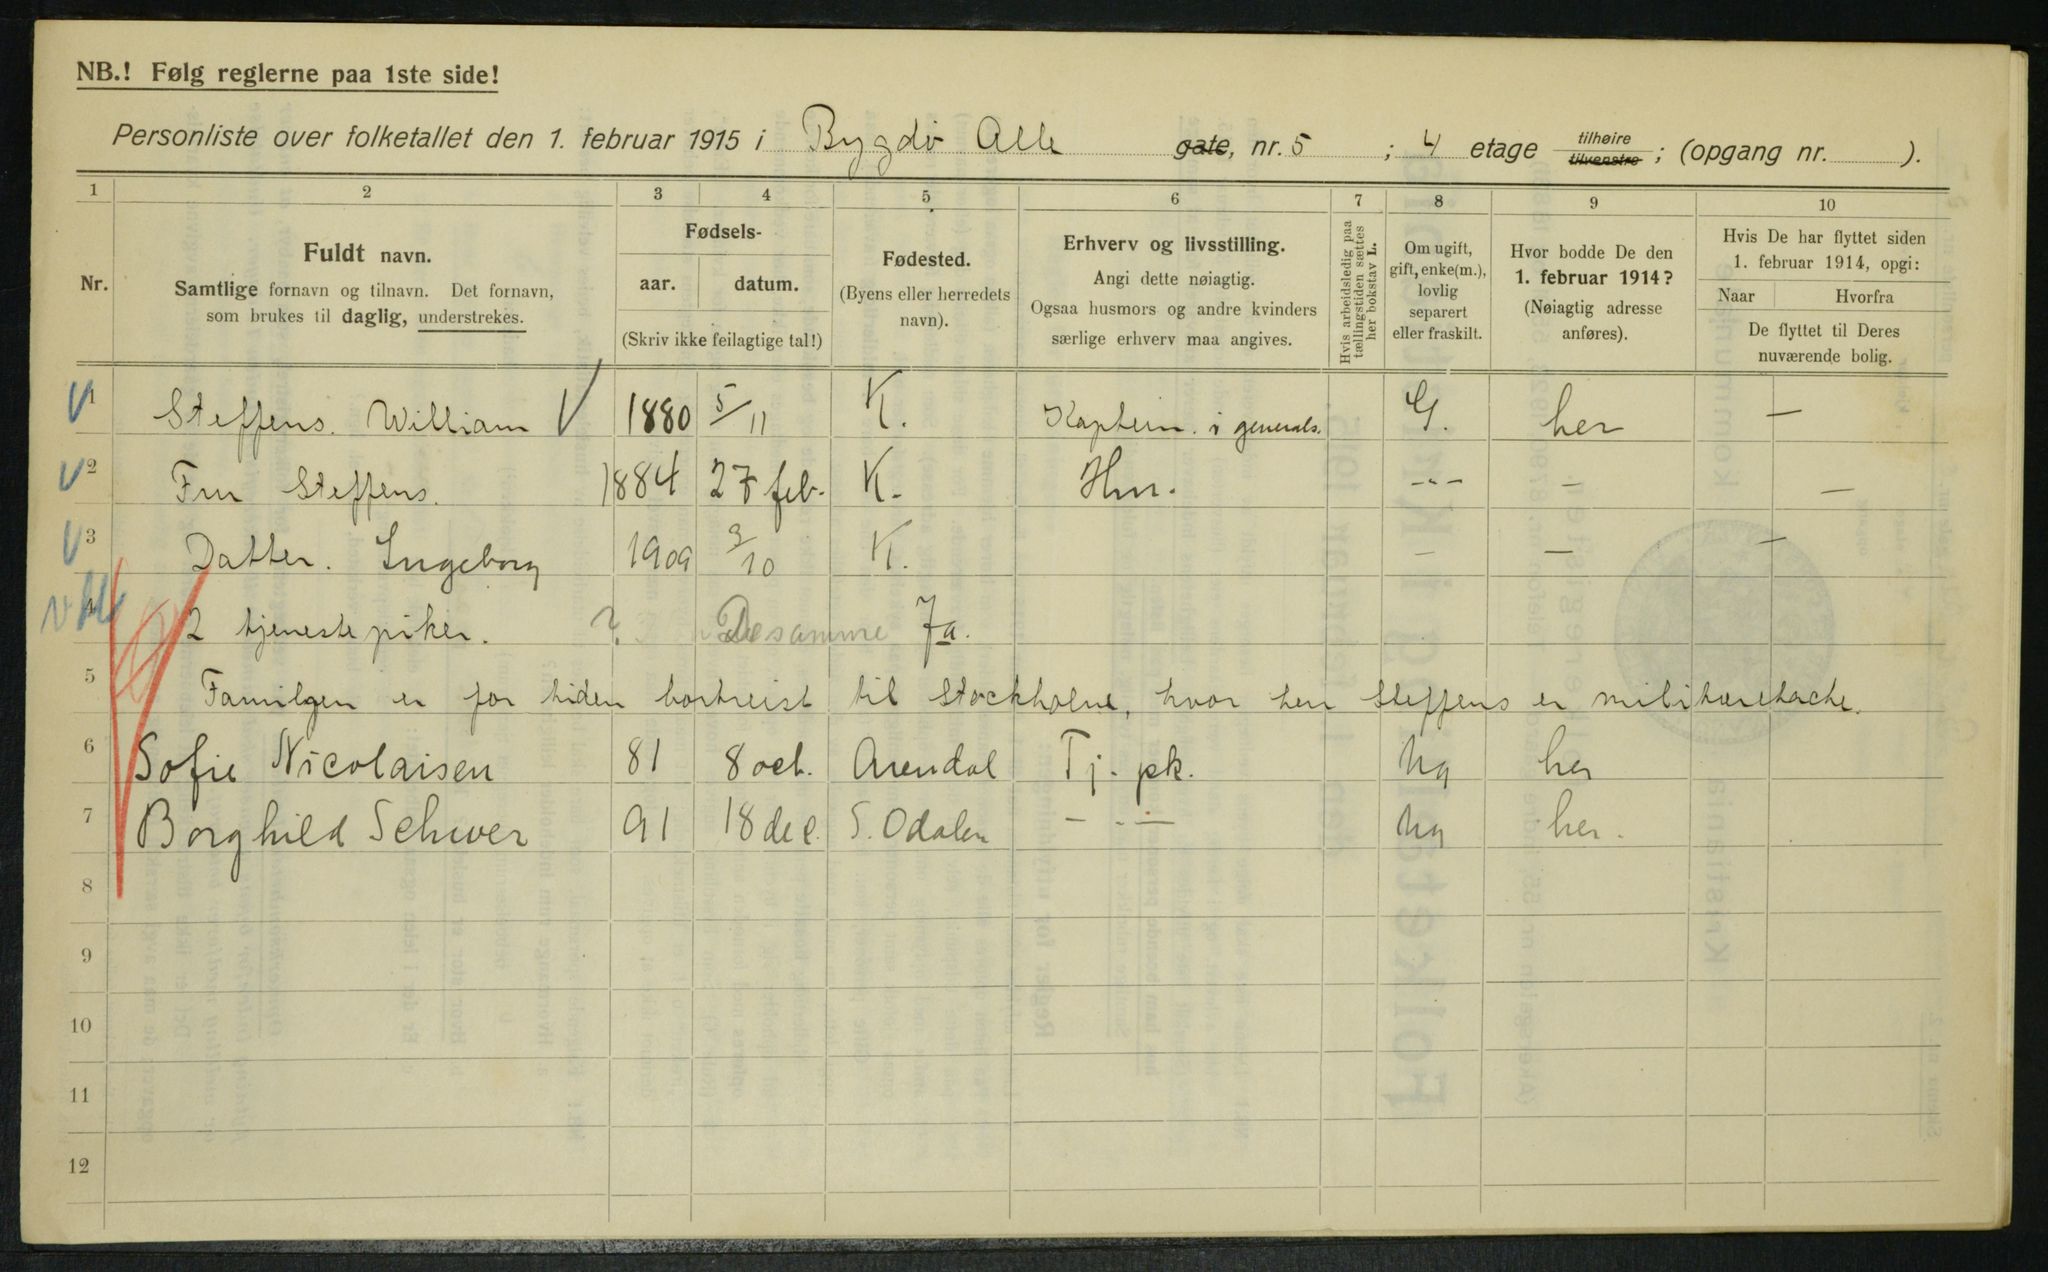 NB.! Følg reglerne paa 1ste side!
Personliste over folketallet den 1. februar 1915 i Bygdö Alle gate, nr. 5 ; 4 etage tilhøire tilvenstre ; (opgang nr. ).
1 2 3 4 5 6 7 8 9 10
Nr.
Fuldt navn.
Samtlige fornavn og tilnavn. Det fornavn,
som brukes til daglig, understrekes.
Fødsels-
aar. datum.
(Skriv ikke feilagtige tal!)
Fødested.
(Byens eller herredets
navn).
Erhverv og livsstilling.
Angi dette nøiagtig.
Ogsaa husmors og andre kvinders
særlige erhverv maa angives.
Hvis arbeidsledig paa
tællingstiden sættes
her bokstav L.
Om ugift,
gift, enke(m.),
lovlig
separert
eller fraskilt.
Hvor bodde De den
1. februar 1914?
(Nøiagtig adresse
anføres).
Hvis De har flyttet siden
1. februar 1914, opgi:
Naar Hvorfra
De flyttet til Deres
nuværende bolig.
1 Steffens. William 1880 5/11 K. Kaptein i generals. G. her —
2 Fru Steffens. 1884 27 feb. K. Hus. -"- — —
3 Datter. Ingeborg 1909 3/10 K. — — —
4 2 tjenestepiker. ? De samme Ja.
5 Familjen er for tiden bortreist til Stockholm, hvor herr Steffens er militæretache.
6 Sofie Nicolaisen 81 8 oct. Arendal Tj. pk. ug her
7 Borghild Schwer 91 18 dec. S. Odalen — " — ug her.
8
9
10
11
12